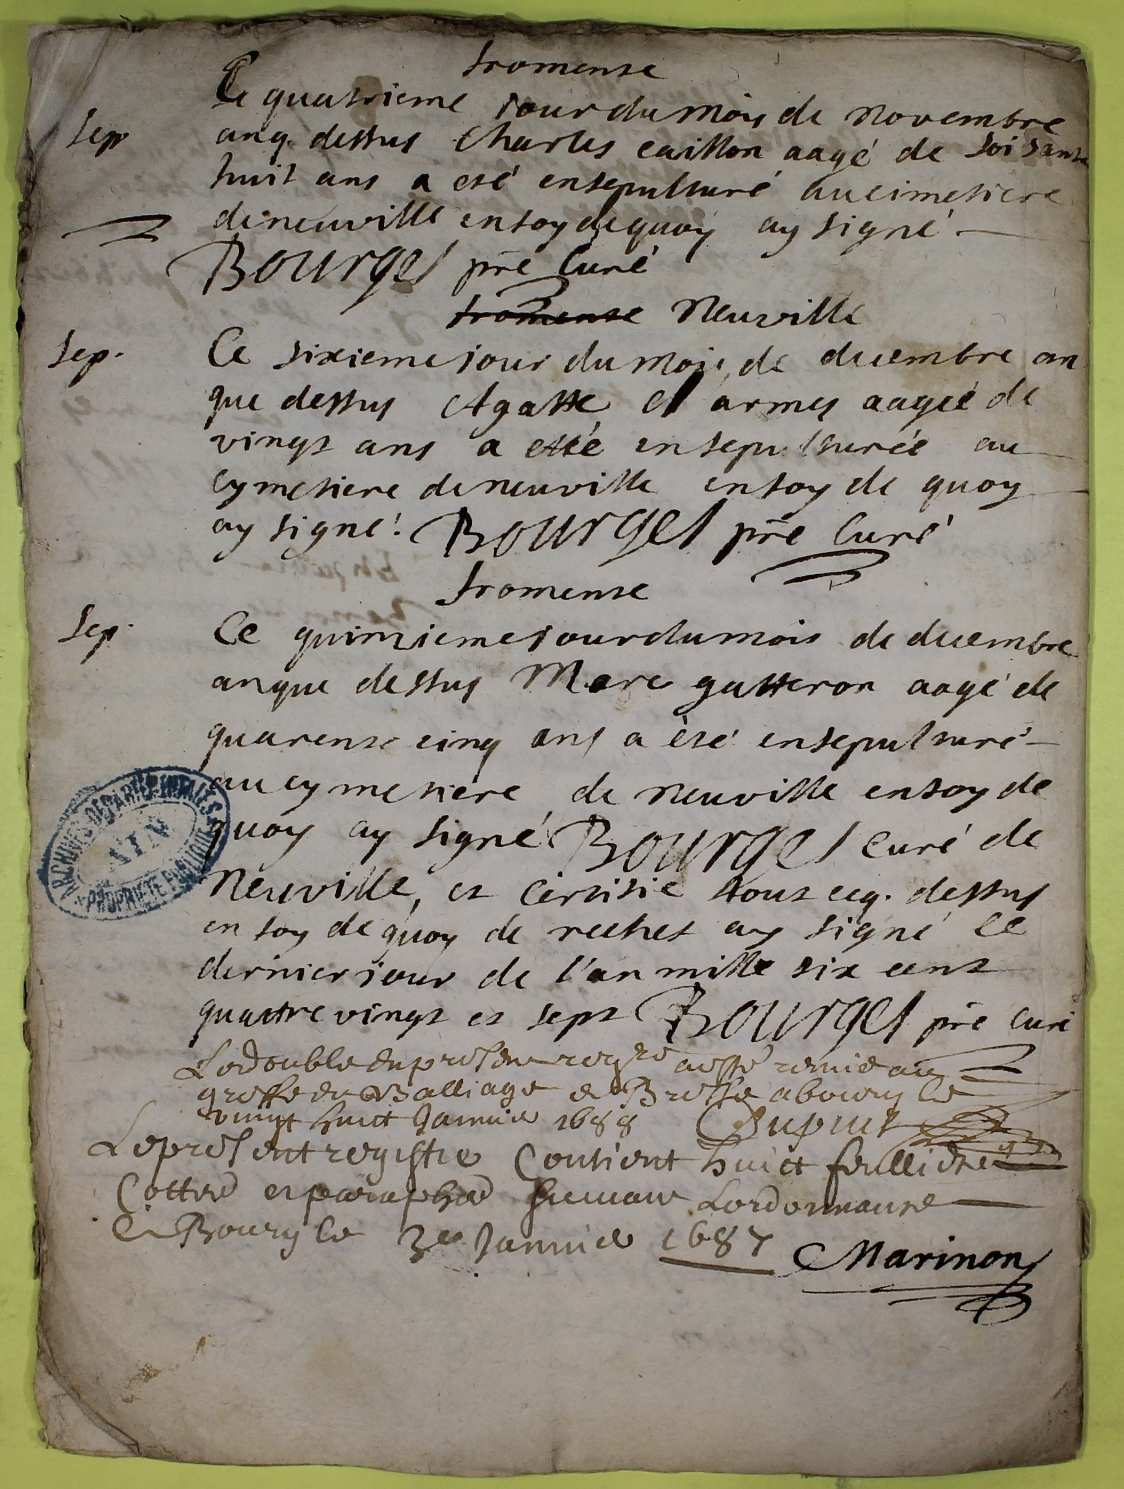 fromente
Le quatrieme jour du mois de novembre
Sep anq. dessus Charles caillon aagé de soisante
huit ans a eté ensepulturé au cimetiere
de neuville en foy de quoy ay signé
Bourges pre Curé
fromente Neuville
Sep. Ce sixieme jour du mois de decembre an
que dessus Agatte armes aageé de
vingt ans a etté ensepulturée au
cymetiere de neuville en foy de quoy
ay signé. Bourges pre Curé
fromente
Sep. Ce quinzieme jour du mois de decembre
an que dessus Marc gutteron aagé de
quarente cinq ans a èté ensepulturé
au cymetiere de neuville en foy de
quoy ay signé Bourges Curé de
Neuville, et tout ceq. dessus
en foy de quoy de rechef ay signé le
dernier jour de l'an mille six cent
quattre vingt et sept Bourges pre Curé
Le double du present regre a esté remis au
greffe du Balliage de Bresse a bourg le
vingt huict Janvier 1688 Dupuis
Le present registre Contient huict feullietz
Cottés et paraphés suivant Lordonnance
a Bourg le 3e Janvier 1687
Marinon
ARCHIVES DÉPARTEMENTALES
AIN
PROPRIÉTÉ PUBLIQUE